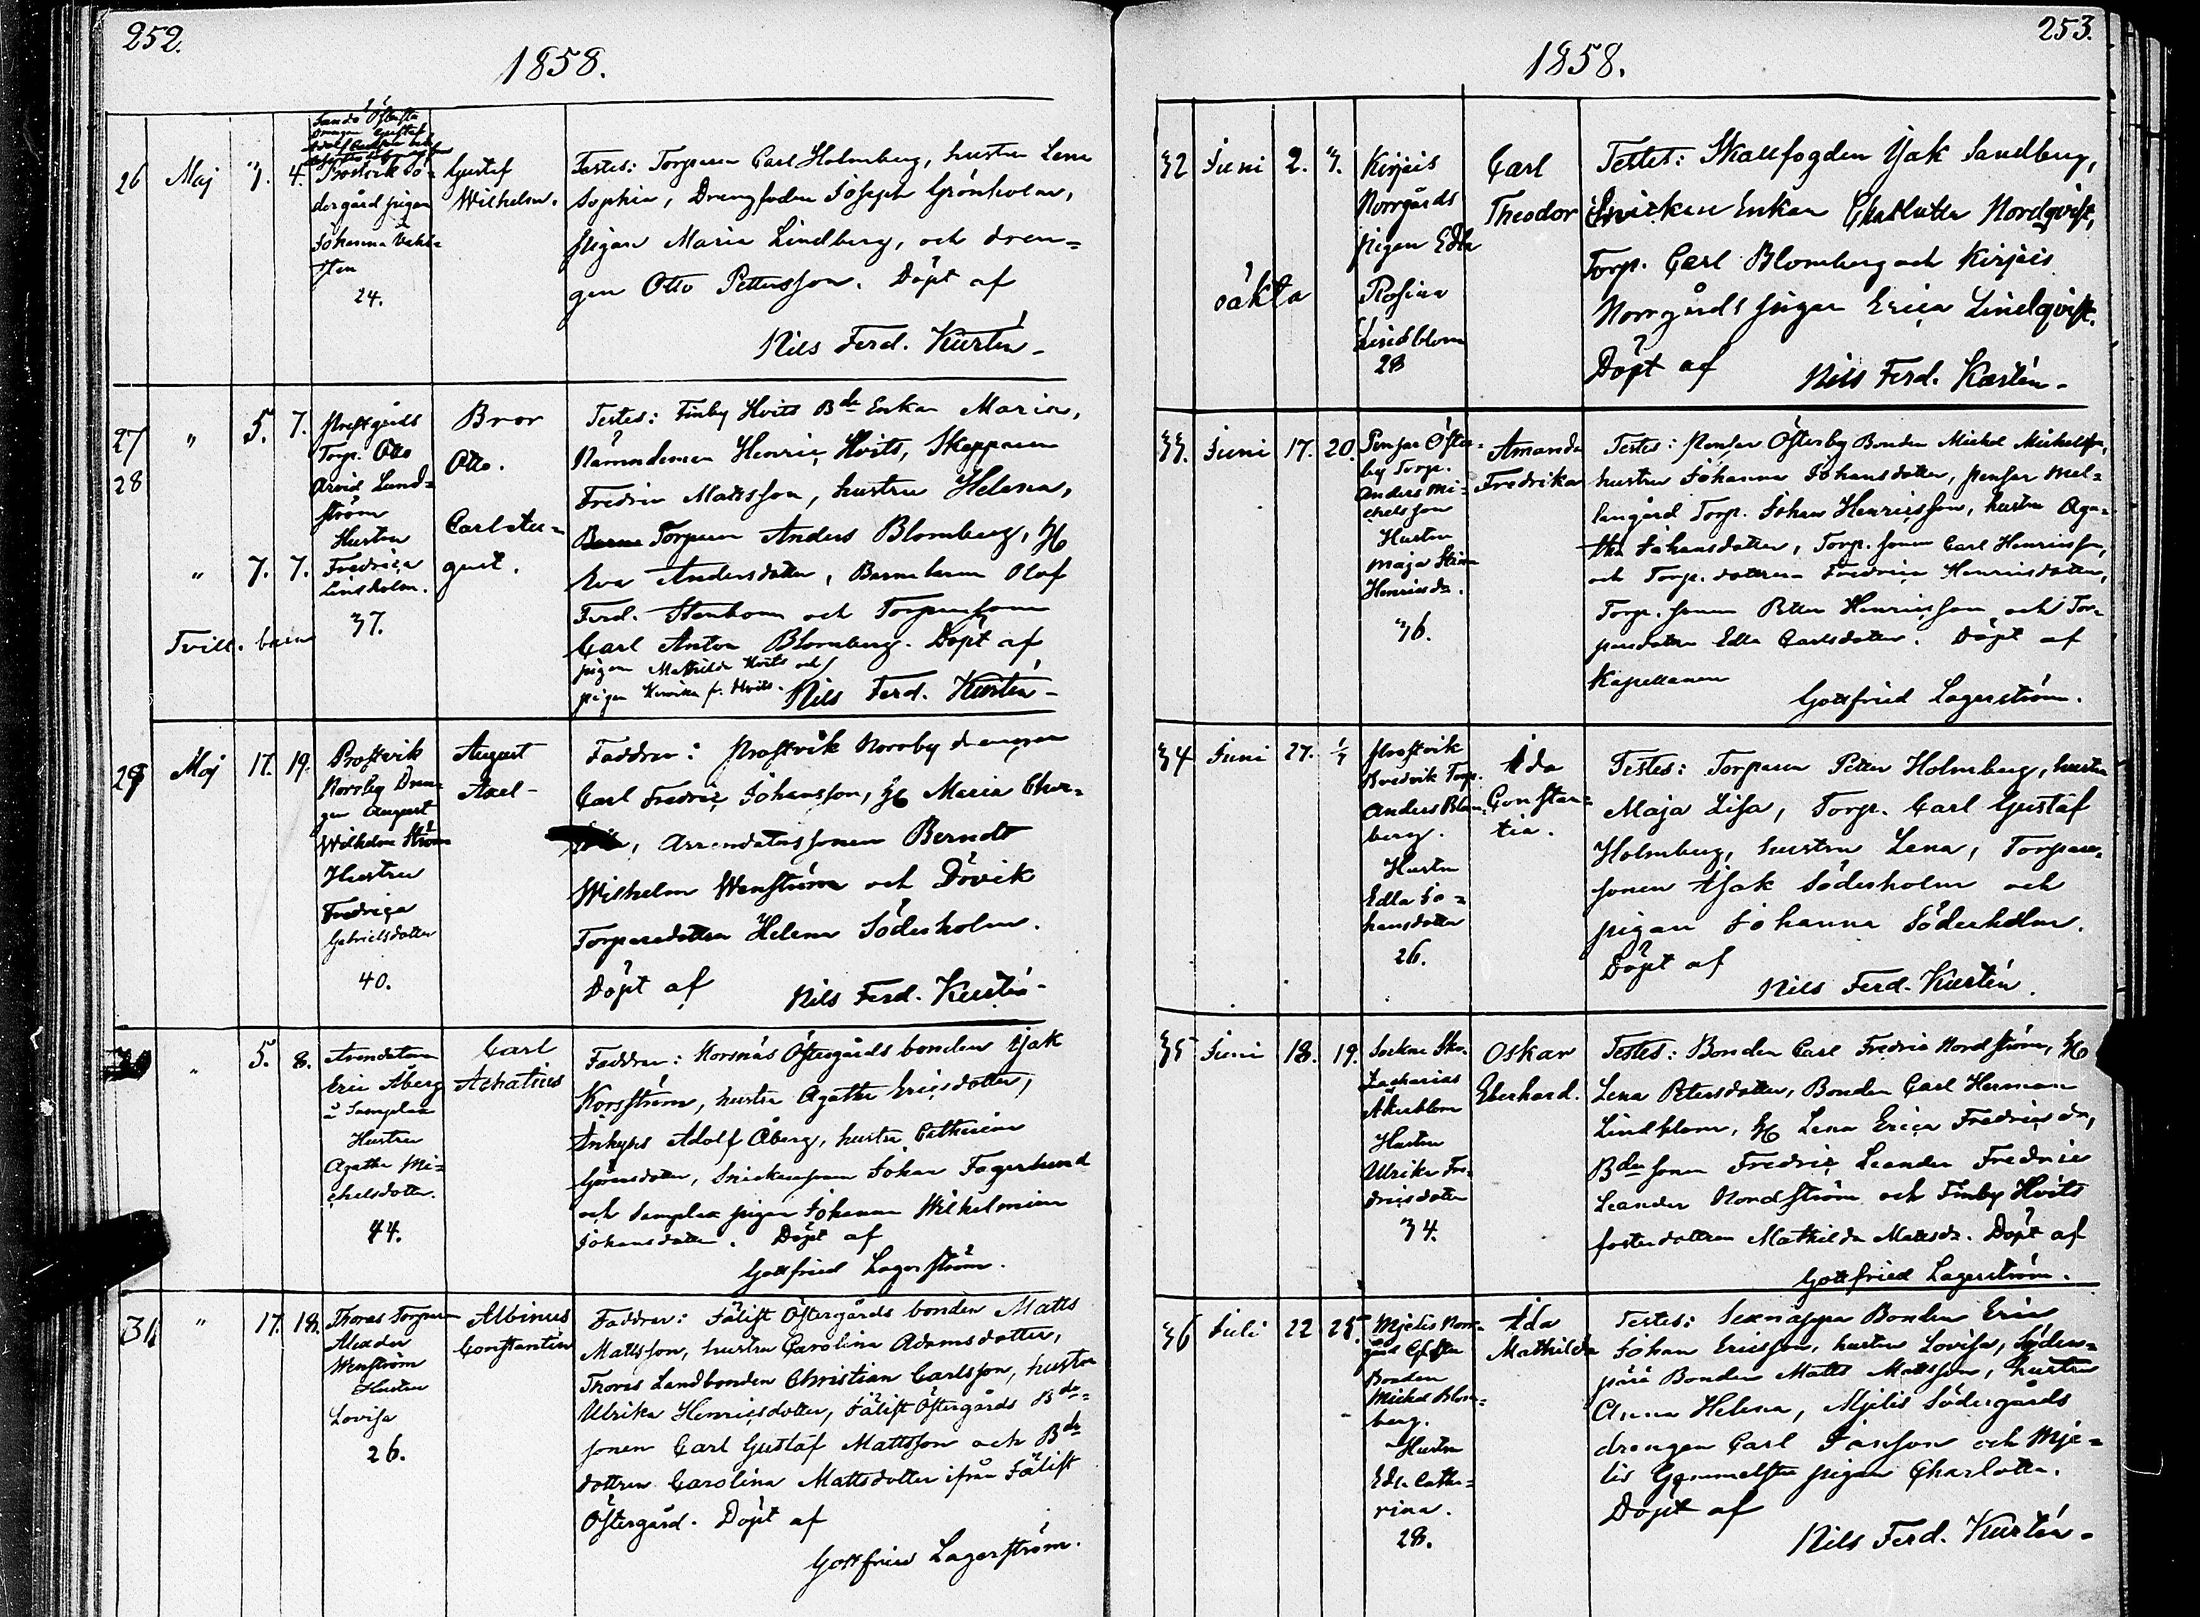 252.
1858.
26 Maj 3. 4.
dergård pigan
Johanna
24.
Gustaf
Wilhelm.
Testes: Torparen Carl Holmberg, hustru Lena
Sophia, Drengfodern Joseph Grönholm,
pigan Maria Lindberg, och dren-
gen Otto Pettersson. Döpt af
Nils Ferd. Kurtén
27
28
" 5. 7.
Prestgårds
Torp. Otto
Arvid Lund-
ström
Hustru
Fredrica
Lindholm.
37.
" 7. 7.
Tvill. barn
Bror
Otto.
Carl Au-
gust.
Testes: Finby Hvits Bde Enkan Maria,
Nämndeman Henric Hvits, Skepparen
Fredric Mattsson, hustru Helena,
Torparen Anders Blomberg, H
Eva Andersdotter, Barnebarn Olof
Ferd. Stenbom och Torparesonen
Carl Anton Blomberg. Döpt af
pigan Mathilda Hvits och
pigan Henrika fr. Hvits. Nils Ferd. Kurtén
29 Maj 17. 19.
Prostvik
Norrby Dren-
gen August
Wilhelm Ström
Hustru
Fredrica
Gabrielsdotter
40.
August
Axel
Faddrar: Prostvik Norrby drengen
Carl Fredric Johansson, H Maria Char-
, Arrendatorssonen Berndt
Wilhelm Wenström och Dövik
Torparedottren Helena Söderholm.
Döpt af
Nils Ferd. Kurtén
30 " 5. 8.
Arendatorn
Eric Åberg
å Samplax
Hustru
Agatha Mi-
chelsdotter.
44.
Carl
Achatius
Faddrar: Korsnäs Östergårds bonden Isak
Korsström, hustru Agatha Ericsdotter,
Inhyses Adolf Åberg, hustru Catharina
Göransdotter, Snickaresonen Johan Fagerlund
och Samplax pigan Johanna Wilhelmina
Johansdotter. Döpt af
Gottfried Lagerström.
31 " 17. 18.
Thoras Torparen
Alexander
Wenström
Hustru
Lovisa
26.
Albinus
Constantin
Faddrar: Fälist Östergårds bonden Matts
Mattsson, hustru Carolina Adamsdotter,
Thoras Landbonden Christian Carlsson, hustru
Ulrika Henricsdotter, Fälist Östergårds Bde-
sonen Carl Gustaf Mattsson och Bde
dottren Carolina Mattsdotter ifrån Fälist
Östergård. Döpt af
Gottfried Lagerström.
253.
1858.
32 Juni 2. 3.
oäkta
Kirjais
Norrgårds
pigan Edla
Rosina
Lindblom
28
Carl
Theodor
Testes: Skallfogden Isak Sandberg,
Enkan Charlotta Nordqvist,
Torp. Carl Blomberg och Kirjais
Norrgårds pigan Erica Lindqvist.
Döpt af
Nils Ferd. Kurtén
33. Juni 17. 20.
Pensar Öster-
by Torp.
Anders Mi-
chelsson
Hustru
Maja Stina
Henricsdr.
36.
Amanda
Fredrika
Testes: Pensar Österby Bonden Michel Michelsson,
hustru Johanna Johansdotter, Pensar Mel-
langård Torp. Johan Henricsson, hustru Aga-
tha Johansdotter, Torp. sonen Carl Henricsson,
och Torp. dottren Fredrica Henricsdotter,
Torp. sonen Petter Henricsson och Tor-
paredottren Edla Carlsdotter. Döpt af
Kapellanen
Gottfried Lagerström.
34 Juni 27. 1/7
Prostvik
Bredvik Torp.
Anders Blom-
berg.
Hustru
Edla Jo-
hansdotter
26.
Ida
Constan-
tia.
Testes: Torparen Petter Holmberg, hustru
Maja Lisa, Torp. Carl Gustaf
Holmberg, hustru Lena, Torpare-
sonen Isak Söderholm och
pigan Johanna Söderholm.
Döpt af
Nils Ferd. Kurtén.
35 Juni 18. 19.
Sockne Sko.
Zacharias
Åkerblom
Hustru
Ulrika Fre-
dricsdotter
34.
Oskar
Eberhard.
Testes: Bonden Carl Fredric Nordström, H
Lena Petersdotter, Bonden Carl Herman
Lindblom, H Lena Erica Fredricsdr,
Bdesonen Fredric Leander Fredric
Leander Nordström och Finby Hvits
fosterdottren Mathilda Mattsdr. Döpt af
Gottfried Lagerström.
36 Juli 22 25.
Mjelis Norr-
gård
Bonden
Michel Blom-
berg.
Hustru
Eda Catha-
rina.
28.
Ida
Mathilda
Testes: Sexnappa Bonden Eric
Johan Ericsson, hustru Lovisa, Söder-
Bonden Matts Mattsson, hustru
Anna Helena, Mjelis Södergårds
drengen Carl Janson och Mje-
lis Gammelstu pigan Charlotta.
Döpt af
Nils Ferd. Kurtén